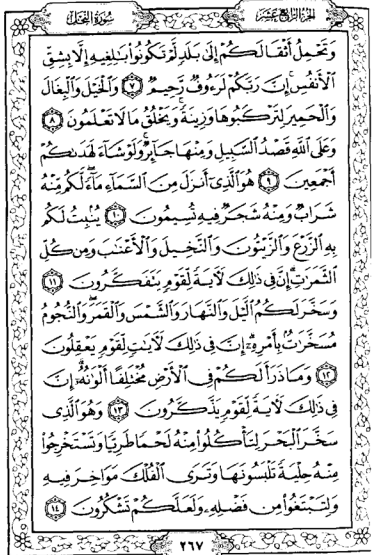 الجزء الرابع عشر
سورة النحل
وَتَحْمِلُ أَثْقَالَكُمْ إِلَىٰ بَلَدٍ لَّمْ تَكُونُوا۟ بَٰلِغِيهِ إِلَّا بِشِقِّ
ٱلْأَنفُسِ ۚ إِنَّ رَبَّكُمْ لَرَءُوفٌ رَّحِيمٌ ٧ وَٱلْخَيْلَ وَٱلْبِغَالَ
وَٱلْحَمِيرَ لِتَرْكَبُوهَا وَزِينَةً ۚ وَيَخْلُقُ مَا لَا تَعْلَمُونَ ٨
وَعَلَى ٱللَّهِ قَصْدُ ٱلسَّبِيلِ وَمِنْهَا جَآئِرٌ ۚ وَلَوْ شَآءَ لَهَدَىٰكُمْ
أَجْمَعِينَ ٩ هُوَ ٱلَّذِىٓ أَنزَلَ مِنَ ٱلسَّمَآءِ مَآءً ۖ لَّكُم مِّنْهُ
شَرَابٌ وَمِنْهُ شَجَرٌ فِيهِ تُسِيمُونَ ١٠ يُنۢبِتُ لَكُم
بِهِ ٱلزَّرْعَ وَٱلزَّيْتُونَ وَٱلنَّخِيلَ وَٱلْأَعْنَٰبَ وَمِن كُلِّ
ٱلثَّمَرَٰتِ ۗ إِنَّ فِى ذَٰلِكَ لَـَٔايَةً لِّقَوْمٍ يَتَفَكَّرُونَ ١١
وَسَخَّرَ لَكُمُ ٱلَّيْلَ وَٱلنَّهَارَ وَٱلشَّمْسَ وَٱلْقَمَرَ ۖ وَٱلنُّجُومُ
مُسَخَّرَٰتٌۢ بِأَمْرِهِۦٓ ۗ إِنَّ فِى ذَٰلِكَ لَـَٔايَٰتٍ لِّقَوْمٍ يَعْقِلُونَ
١٢ وَمَا ذَرَأَ لَكُمْ فِى ٱلْأَرْضِ مُخْتَلِفًا أَلْوَٰنُهُۥٓ ۗ إِنَّ
فِى ذَٰلِكَ لَـَٔايَةً لِّقَوْمٍ يَذَّكَّرُونَ ١٣ وَهُوَ ٱلَّذِى
سَخَّرَ ٱلْبَحْرَ لِتَأْكُلُوا۟ مِنْهُ لَحْمًا طَرِيًّا وَتَسْتَخْرِجُوا۟
مِنْهُ حِلْيَةً تَلْبَسُونَهَا وَتَرَى ٱلْفُلْكَ مَوَاخِرَ فِيهِ
وَلِتَبْتَغُوا۟ مِن فَضْلِهِۦ وَلَعَلَّكُمْ تَشْكُرُونَ ١٤
٢٦٧